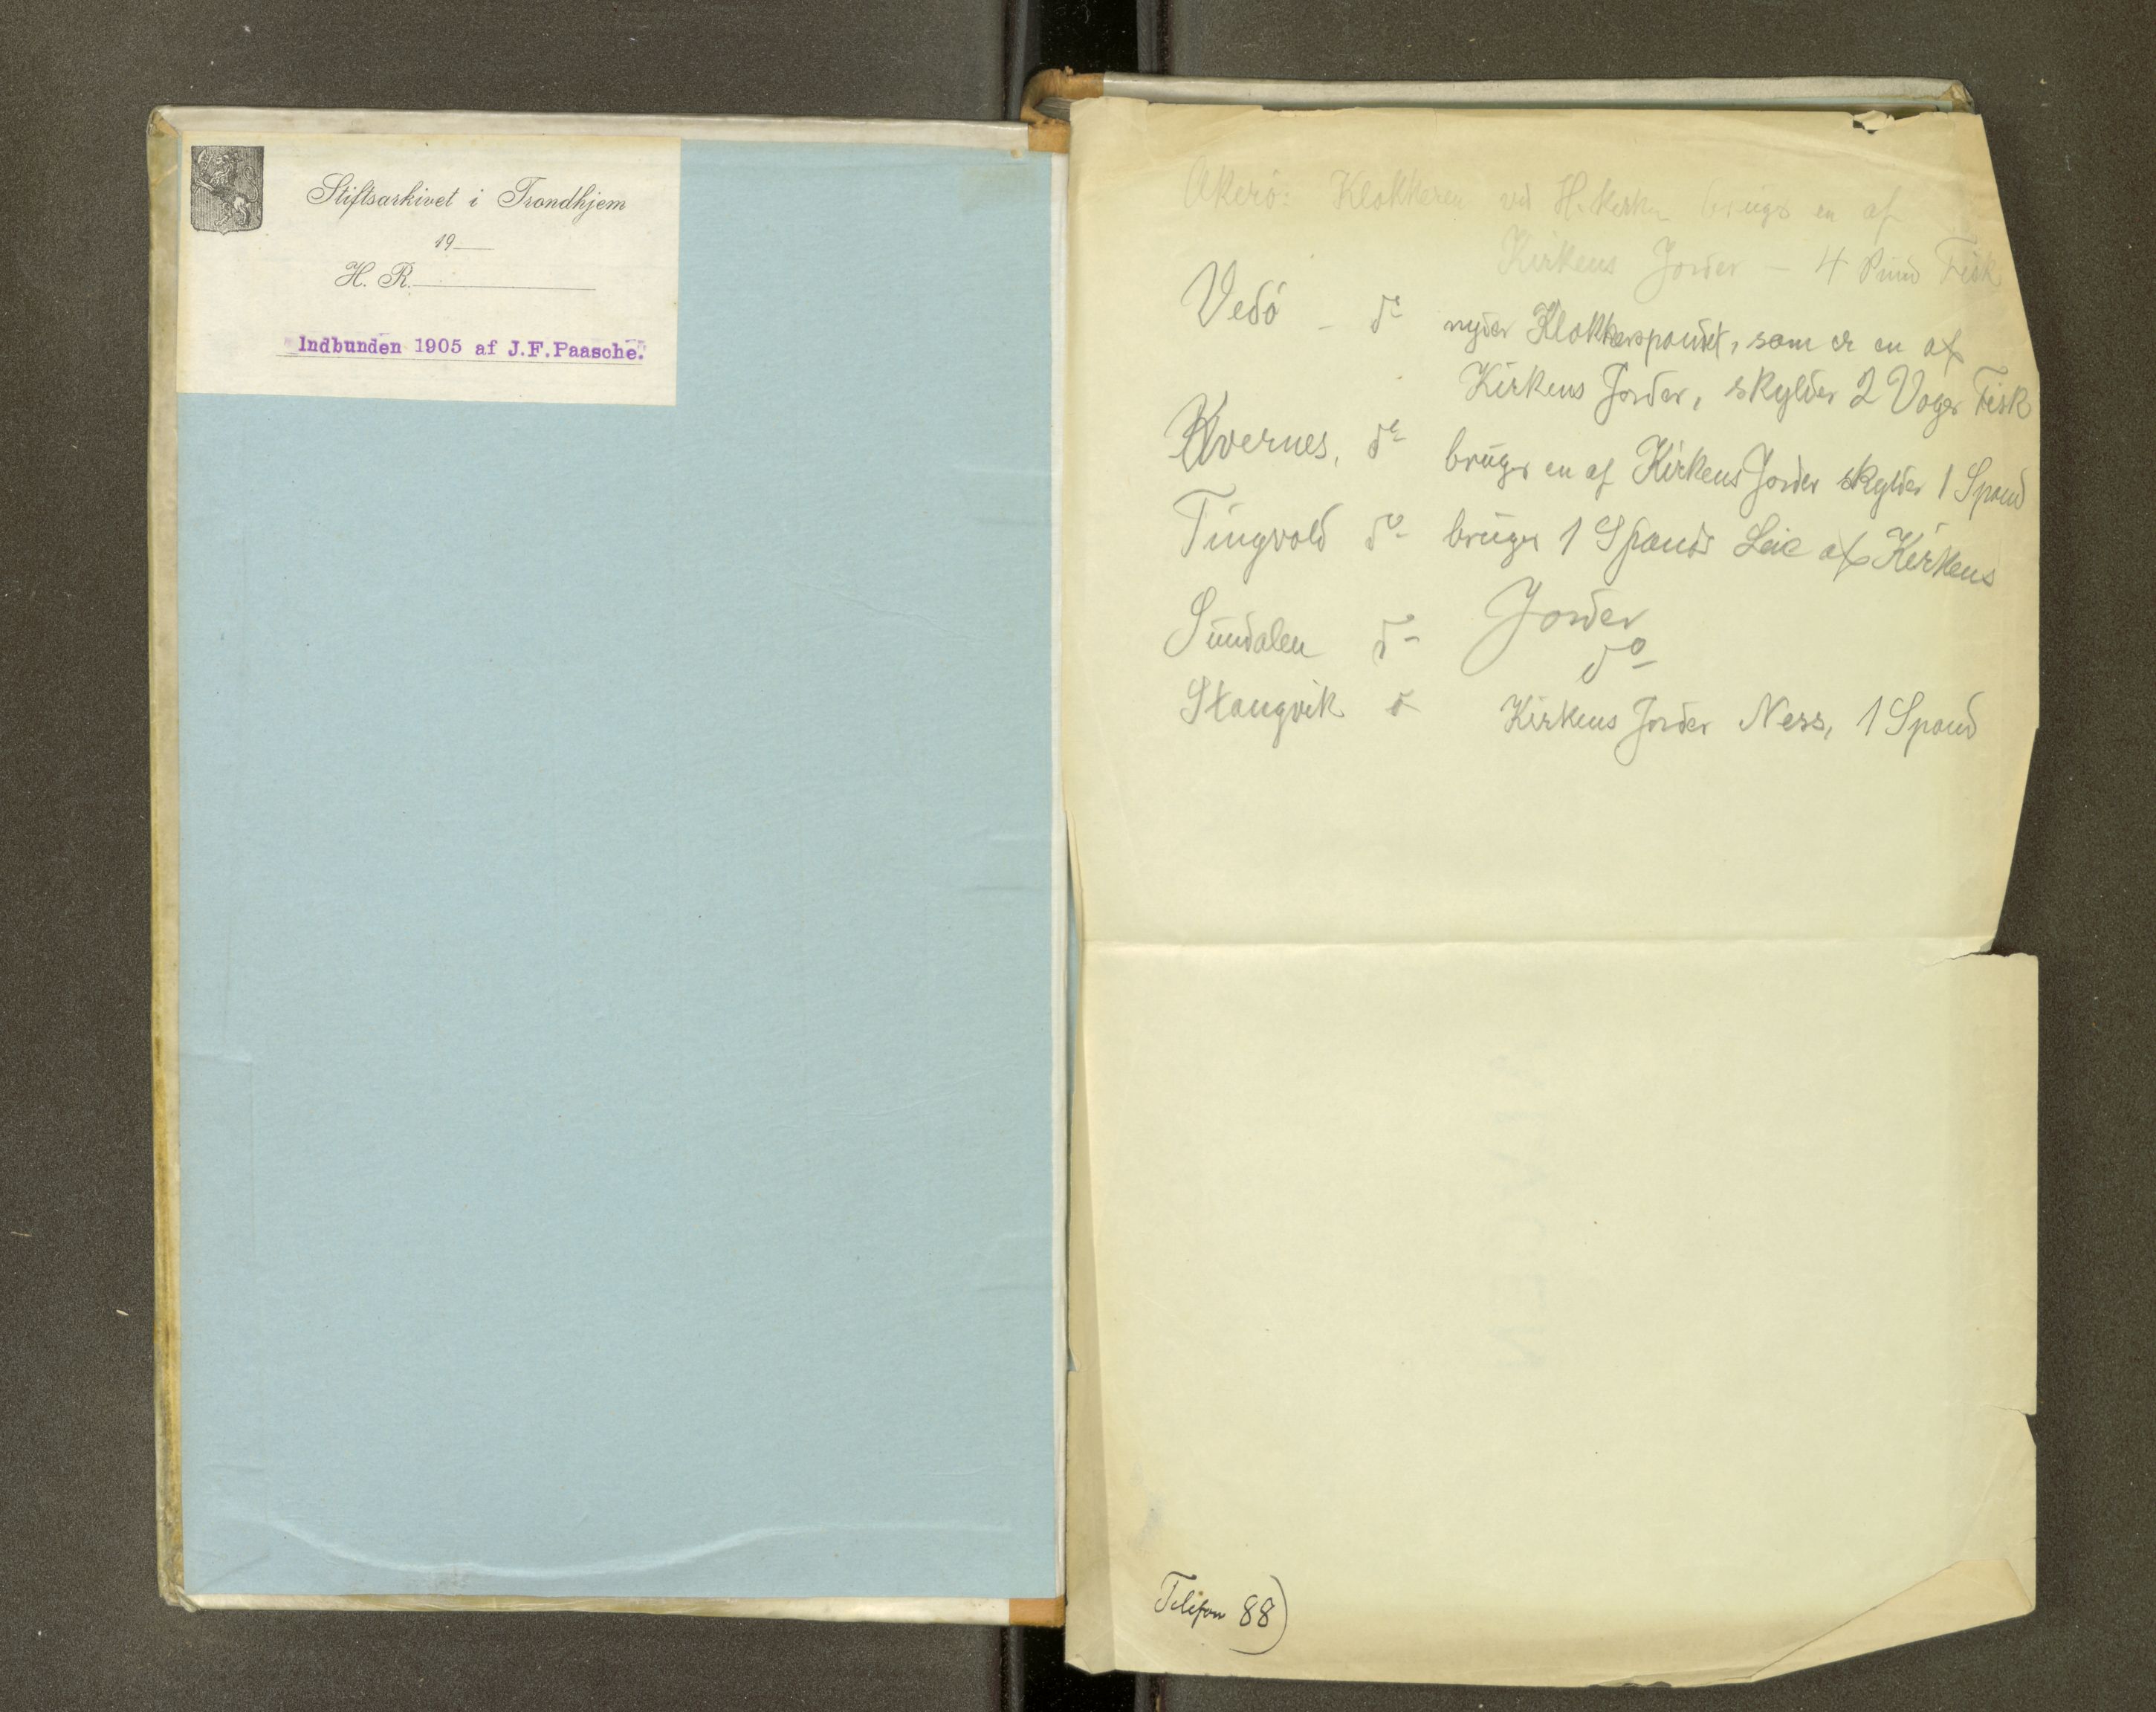 Stiftsarkivet i Trondhjem
19
H. R.
Indbunden 1905 af J.F.Paasche.
Akerö: Klokkeren ved H.kirken bruger en af
Kirkens Jorder — 4 Pund Fisk
Vedö – do nyder Klokkerspandet, som er en af
Kirkens Jorder, skylder 2 Voger Fisk
Kvernes, do bruger en af Kirkens Jorder skylder 1 Spand
Tingvold do bruger 1 Spands Leie af Kirkens
Jorder
Sundalen do do
Stangvik do Kirkens Jorder Ness, 1 Spand
Telefon 88)